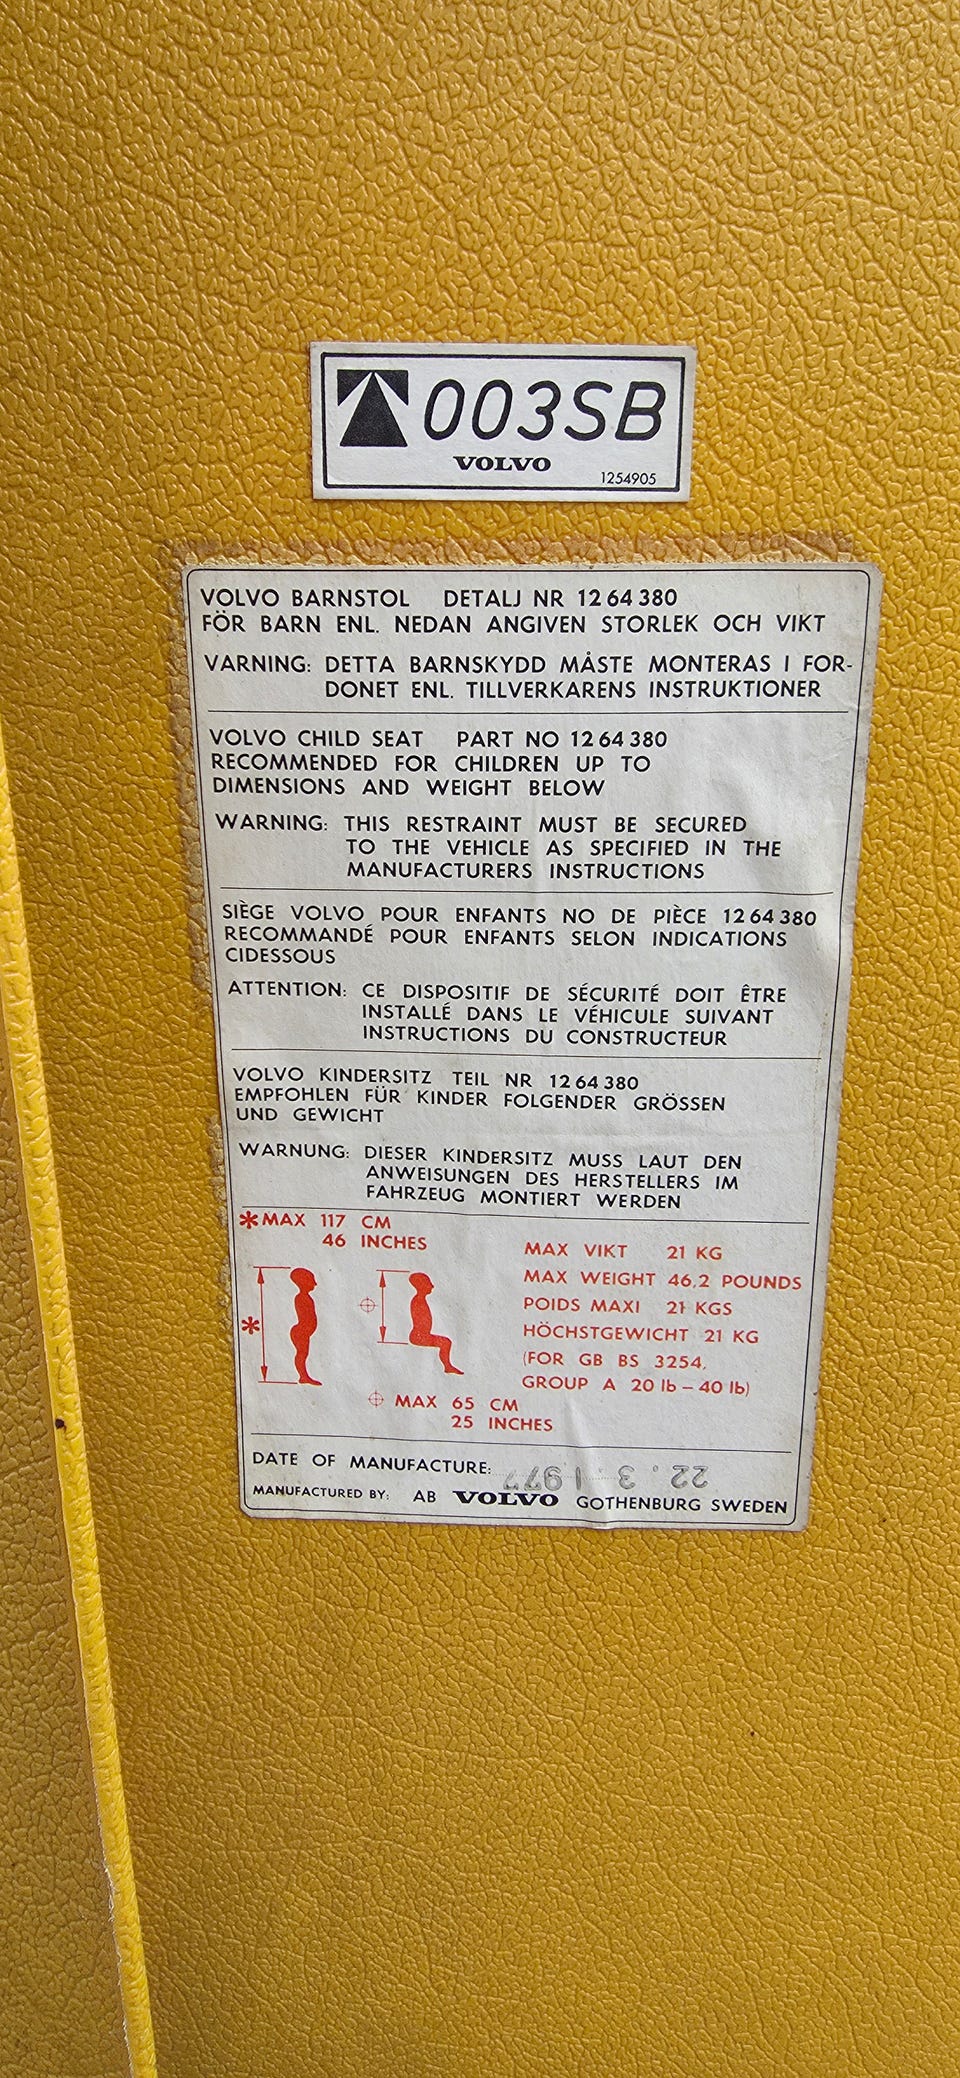 003SB
VOLVO
1254905
VOLVO BARNSTOL DETALJ NR 12 64 380
FÖR BARN ENL. NEDAN ANGIVEN STORLEK OCH VIKT
VARNING: DETTA BARNSKYDD MÅSTE MONTERAS I FOR-
DONET ENL. TILLVERKARENS INSTRUKTIONER
VOLVO CHILD SEAT PART NO 12 64 380
RECOMMENDED FOR CHILDREN UP TO
DIMENSIONS AND WEIGHT BELOW
WARNING: THIS RESTRAINT MUST BE SECURED
TO THE VEHICLE AS SPECIFIED IN THE
MANUFACTURERS INSTRUCTIONS
SIÈGE VOLVO POUR ENFANTS NO DE PIÈCE 12 64 380
RECOMMANDÉ POUR ENFANTS SELON INDICATIONS
CIDESSOUS
ATTENTION: CE DISPOSITIF DE SÉCURITÉ DOIT ÊTRE
INSTALLÉ DANS LE VÉHICULE SUIVANT
INSTRUCTIONS DU CONSTRUCTEUR
VOLVO KINDERSITZ TEIL NR 12 64 380
EMPFOHLEN FÜR KINDER FOLGENDER GRÖSSEN
UND GEWICHT
WARNUNG: DIESER KINDERSITZ MUSS LAUT DEN
ANWEISUNGEN DES HERSTELLERS IM
FAHRZEUG MONTIERT WERDEN
*MAX 117 CM
46 INCHES
*
MAX 65 CM
25 INCHES
MAX VIKT 21 KG
MAX WEIGHT 46,2 POUNDS
POIDS MAXI 21 KGS
HÖCHSTGEWICHT 21 KG
(FOR GB BS 3254,
GROUP A 20 lb – 40 lb)
DATE OF MANUFACTURE: 22. 3 1977
MANUFACTURED BY: AB VOLVO GOTHENBURG SWEDEN